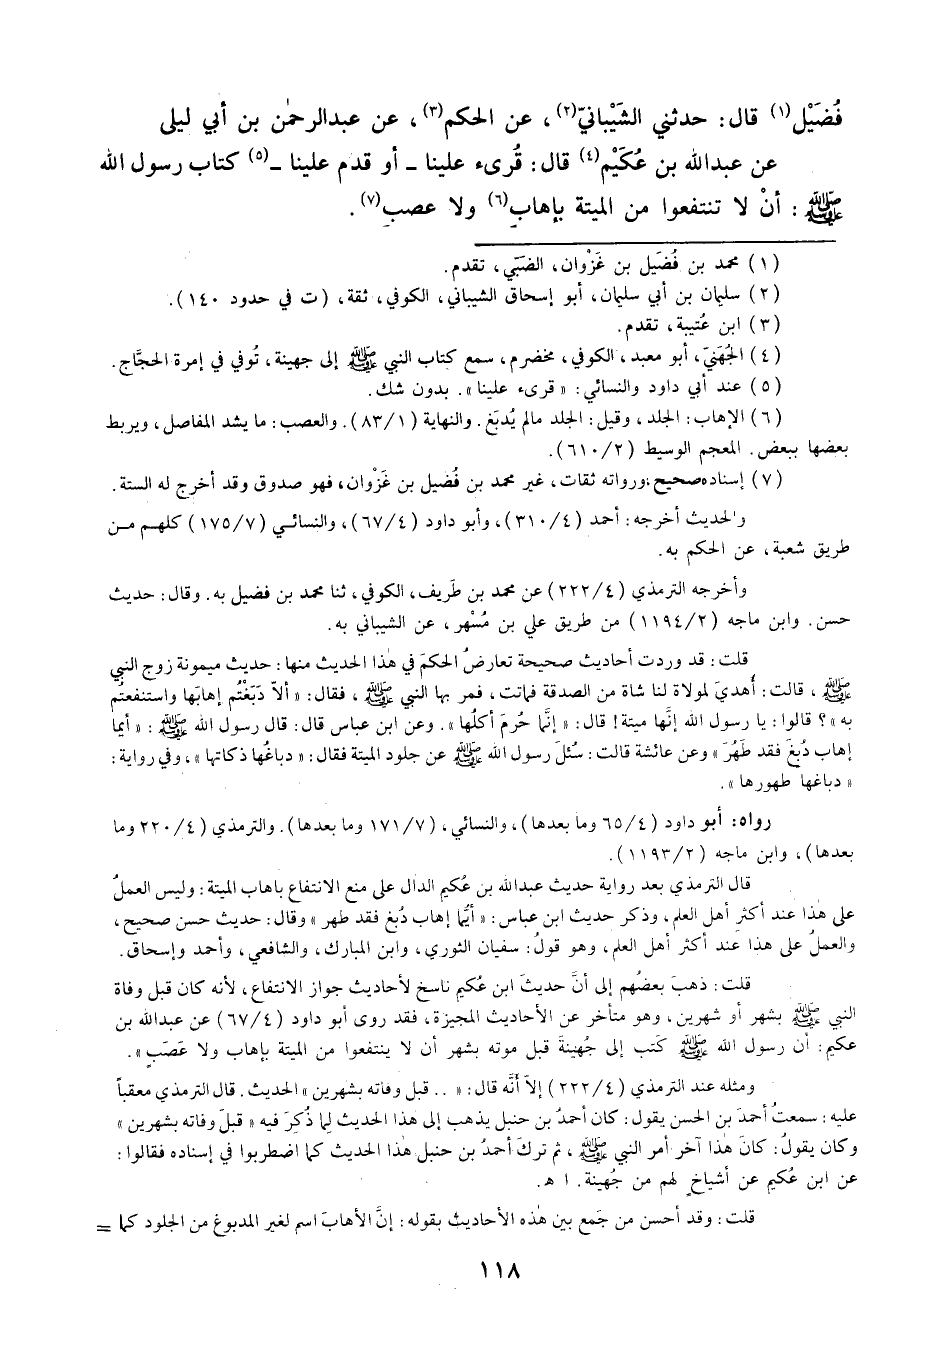 فُضَيْل(١) قال: حدثني الشَيْبانيّ(٢)، عن الحكم(٣)، عن عبدالرحمٰن بن أبي ليلى
عن عبدالله بن عُكَيْم(٤) قال: قُرىء علينا ـ أو قدم علينا ـ(٥) كتاب رسول الله
ﷺ: أنْ لا تنتفعوا من الميتة بإهابٍ(٦) ولا عصبٍ(٧).
(١) محمد بن فُضَيل بن غَزْوان، الضبّي، تقدم.
(٢) سليمان بن أبي سليمان، أبو إسحاق الشيباني، الكوفي، ثقة، (ت في حدود ١٤٠).
(٣) ابن عُتيبة، تقدم.
(٤) الجُهَنيّ، أبو معبد، الكوفي، مخضرم، سمع كتاب النبي ﷺ إلى جهينة، تُوفي في إمرة الحجَّاج.
(٥) عند أبي داود والنسائي: «قرىء علينا». بدون شك.
(٦) الإهاب: الجلد، وقيل: الجلد مالم يُدبَغ. والنهاية (٨٣/١). والعصب: ما يشد المفاصل، ويربط
بعضها ببعض. المعجم الوسيط (٦١٠/٢).
(٧) إسناده صحيح، ورواته ثقات، غير محمد بن فُضيل بن غَزْوان، فهو صدوق وقد أخرج له الستة.
والحديث أخرجه: أحمد (٣١٠/٤)، وأبو داود (٦٧/٤)، والنسائي (١٧٥/٧) كلهم من
طريق شعبة، عن الحكم به.
وأخرجه الترمذي (٢٢٢/٤) عن محمد بن طَريف، الكوفي، ثنا محمد بن فضيل به. وقال: حديث
حسن. وابن ماجه (١١٩٤/٢) من طريق علي بن مُسْهر، عن الشيباني به.
قلت: قد وردت أحاديث صحيحة تعارضُ الحكمَ في هٰذا الحديث منها: حديث ميمونة زوج النبي
ﷺ، قالت: أُهديَ لمولاة لنا شاة من الصدقة فماتت، فمر بها النبي ﷺ، فقال: «ألاّ دَبَغْتُم إهابَها واستنفعتُم
به»؟ قالوا: يا رسول الله إنَّها ميتة! قال: «إنَّما حُرمَ أكلُها». وعن ابن عباس قال: قال رسول الله ﷺ: «أيما
إهاب دُبغَ فقد طَهُرَ» وعن عائشة قالت: سُئلَ رسول الله ﷺ عن جلود الميتة فقال: «دباغُها ذكاتها»، وفي رواية:
«دباغها طهورها».
رواه: أبو داود (٦٥/٤ وما بعدها)، والنسائي، (١٧١/٧ وما بعدها). والترمذي (٢٢٠/٤ وما
بعدها)، وابن ماجه (١١٩٣/٢).
قال الترمذي بعد رواية حديث عبدالله بن عُكيم الدال على منع الانتفاع بأهاب الميتة: وليس العملُ
على هٰذا عند أكثر أهل العلم، وذكر حديث ابن عباس: «أيُّما إهاب دُبغ فقد طهر» وقال: حديث حسن صحيح،
والعملُ على هٰذا عند أكثر أهل العلم، وهو قولُ: سفيان الثوري، وابن المبارك، والشافعي، وأحمد وإسحاق.
قلت: ذهبَ بعضُهم إلى أنَّ حديثَ ابن عُكيم ناسخ لأحاديث جواز الانتفاع، لأنه كان قبل وفاة
النبي ﷺ بشهر أو شهرين، وهو متأخر عن الأحاديث المجيزة، فقد روى أبو داود (٦٧/٤) عن عبدالله بن
عكيم: أن رسول الله ﷺ كَتب إلى جُهينةَ قبل موته بشهر أن لا ينتفعوا من الميتة بإهاب ولا عَصَبٍ».
ومثله عند الترمذي (٢٢٢/٤) إلاّ أنَّه قال: «.. قبل وفاته بشهرين» الحديث. قال الترمذي معقباً
عليه: سمعتُ أحمدَ بن الحسن يقول: كان أحمدُ بن حنبل يذهب إلى هذا الحديث لِما ذُكرَ فيه «قبلَ وفاته بشهرين»
وكان يقولُ: كانَ هٰذا آخر أمر النبي ﷺ، ثم تركَ أحمدُ بن حنبل هٰذا الحديث كما اضطربوا في إسناده فقالوا:
عن ابن عُكيم عن أشياخٍ لهم من جُهينة. ا هـ.
قلت: وقد أحسن من جَمع بين هٰذه الأحاديث بقوله: إنَّ الأهابَ اسم لغير المدبوغ من الجلود كما =
١١٨